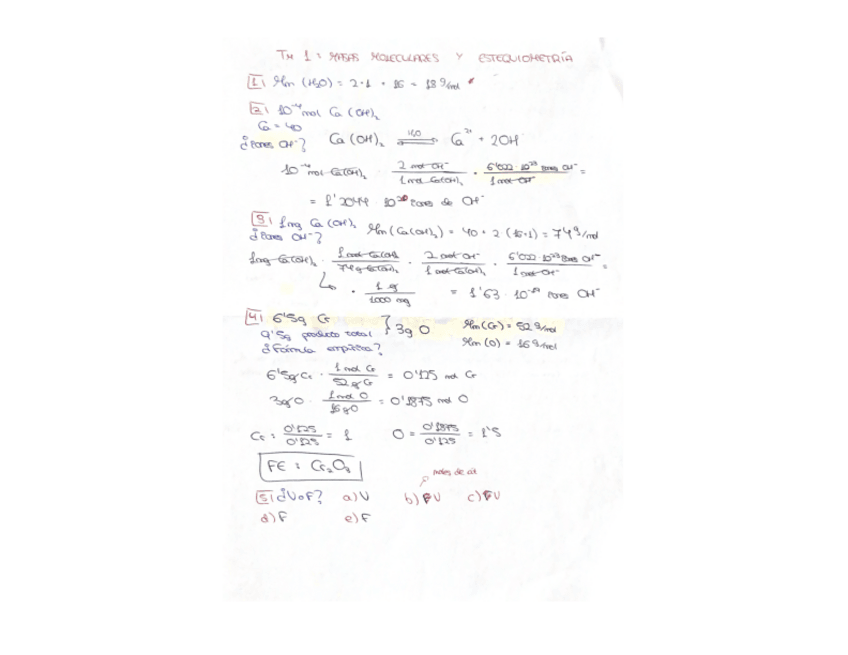 TM 1: MASAS MOLECULARES Y ESTEQUIOMETRÍA
1) Mm (H2O) = 2·1 + 16 = 18 g/mol
2) 10⁻⁴ mol Ca(OH)₂
Ca = 40
¿Iones OH⁻? Ca(OH)₂ ⇌ Ca²⁺ + 2OH⁻
H2O
10⁻⁴ mol Ca(OH)₂ · 2 mol OH⁻ / 1 mol Ca(OH)₂ · 6'022·10²³ iones OH⁻ / 1 mol OH⁻ =
= 1'2044 · 10²⁰ iones de OH⁻
3) 1mg Ca(OH)₂ Mm(Ca(OH)₂) = 40 + 2(16+1) = 74 g/mol
¿Iones OH⁻?
1mg Ca(OH)₂ · 1 mol Ca(OH)₂ / 74 g Ca(OH)₂ · 2 mol OH⁻ / 1 mol Ca(OH)₂ · 6'022·10²³ iones OH⁻ / 1 mol OH⁻ =
· 1 g / 1000 mg = 1'63 · 10⁻¹⁹ iones OH⁻
4) 6'5g Cr } 3g O Mm(Cr) = 52 g/mol
9'5g producto total Mm(O) = 16 g/mol
¿Fórmula empírica?
6'5g Cr · 1 mol Cr / 52 g Cr = 0'125 mol Cr
3g O · 1 mol O / 16 g O = 0'1875 mol O
Cr: 0'125 / 0'125 = 1 O = 0'1875 / 0'125 = 1'5
FE: Cr₂O₃
moles de át
5) ¿V o F? a) V b) V c) V
d) F e) F